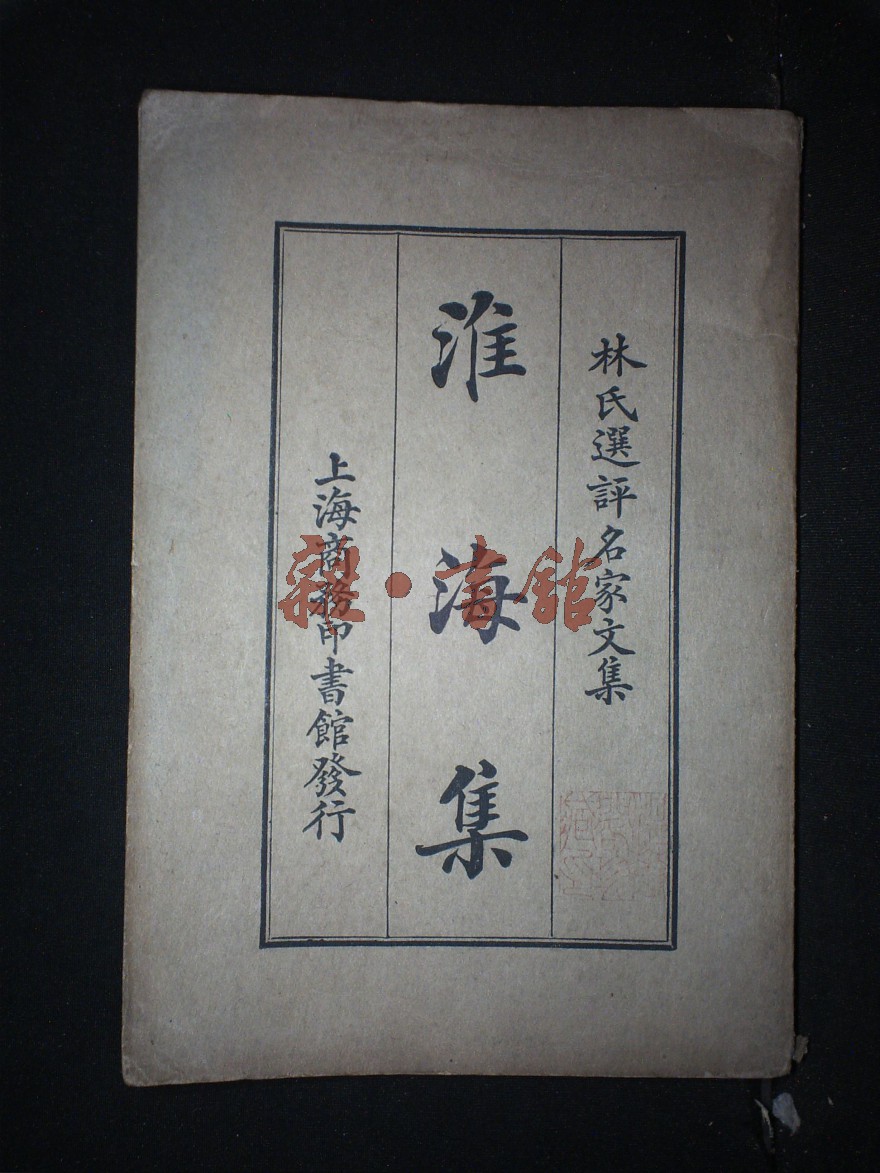 林氏選評名家文集
淮海集
上海商務印書館發行